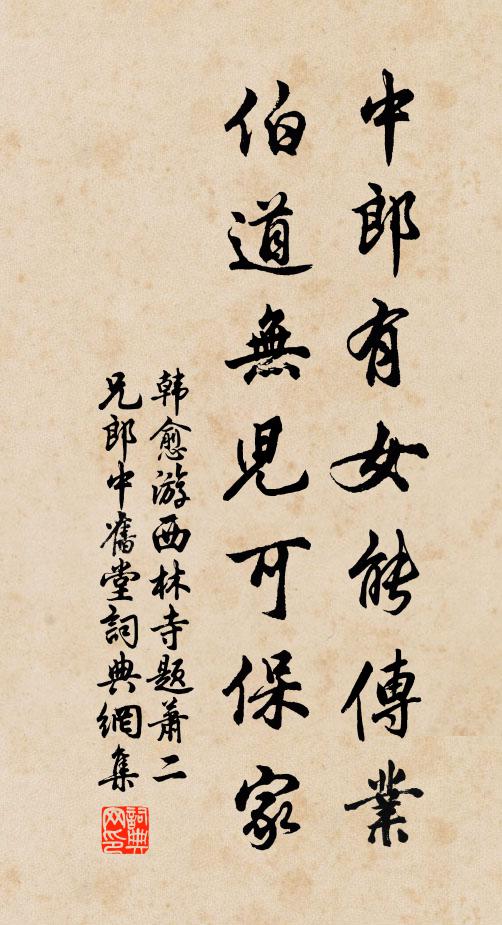 中郎有女能傳業
伯道無兒可保家
韩愈游西林寺題蕭二
兄郎中舊堂詞典網集
詞典网印